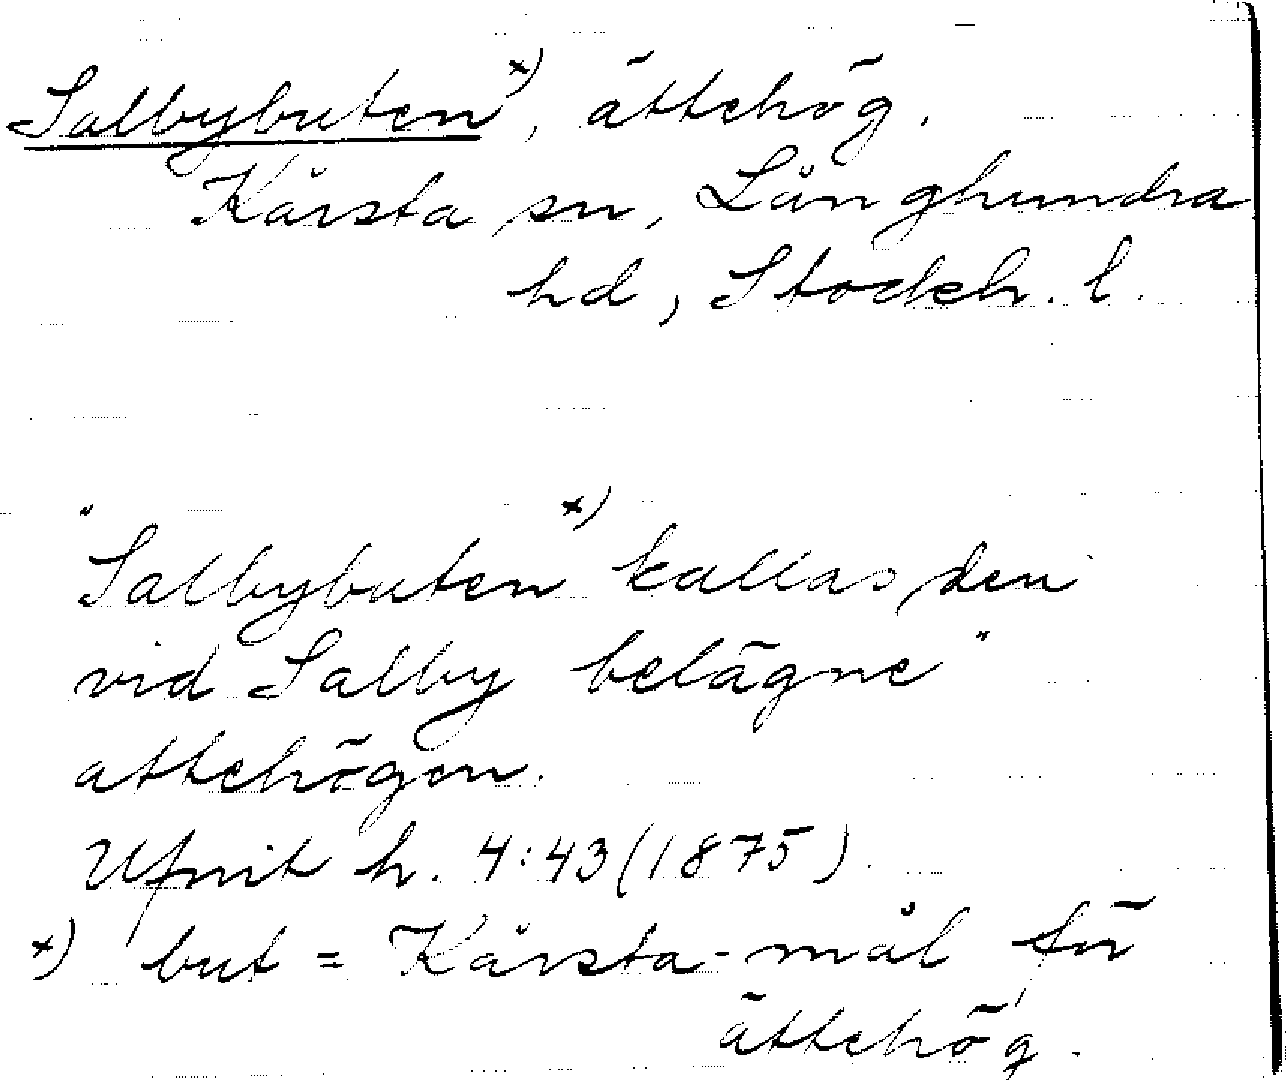 Salbybuten x), ättehög.
Kårsta sn, Långhundra
hd, Stockh. l.
"Salbybuten x) kallas den
vid Salby belägne"
attehögen.
Ufmit h. 4:43 (1875).
x) but = Kårsta-mål för
ättehög.